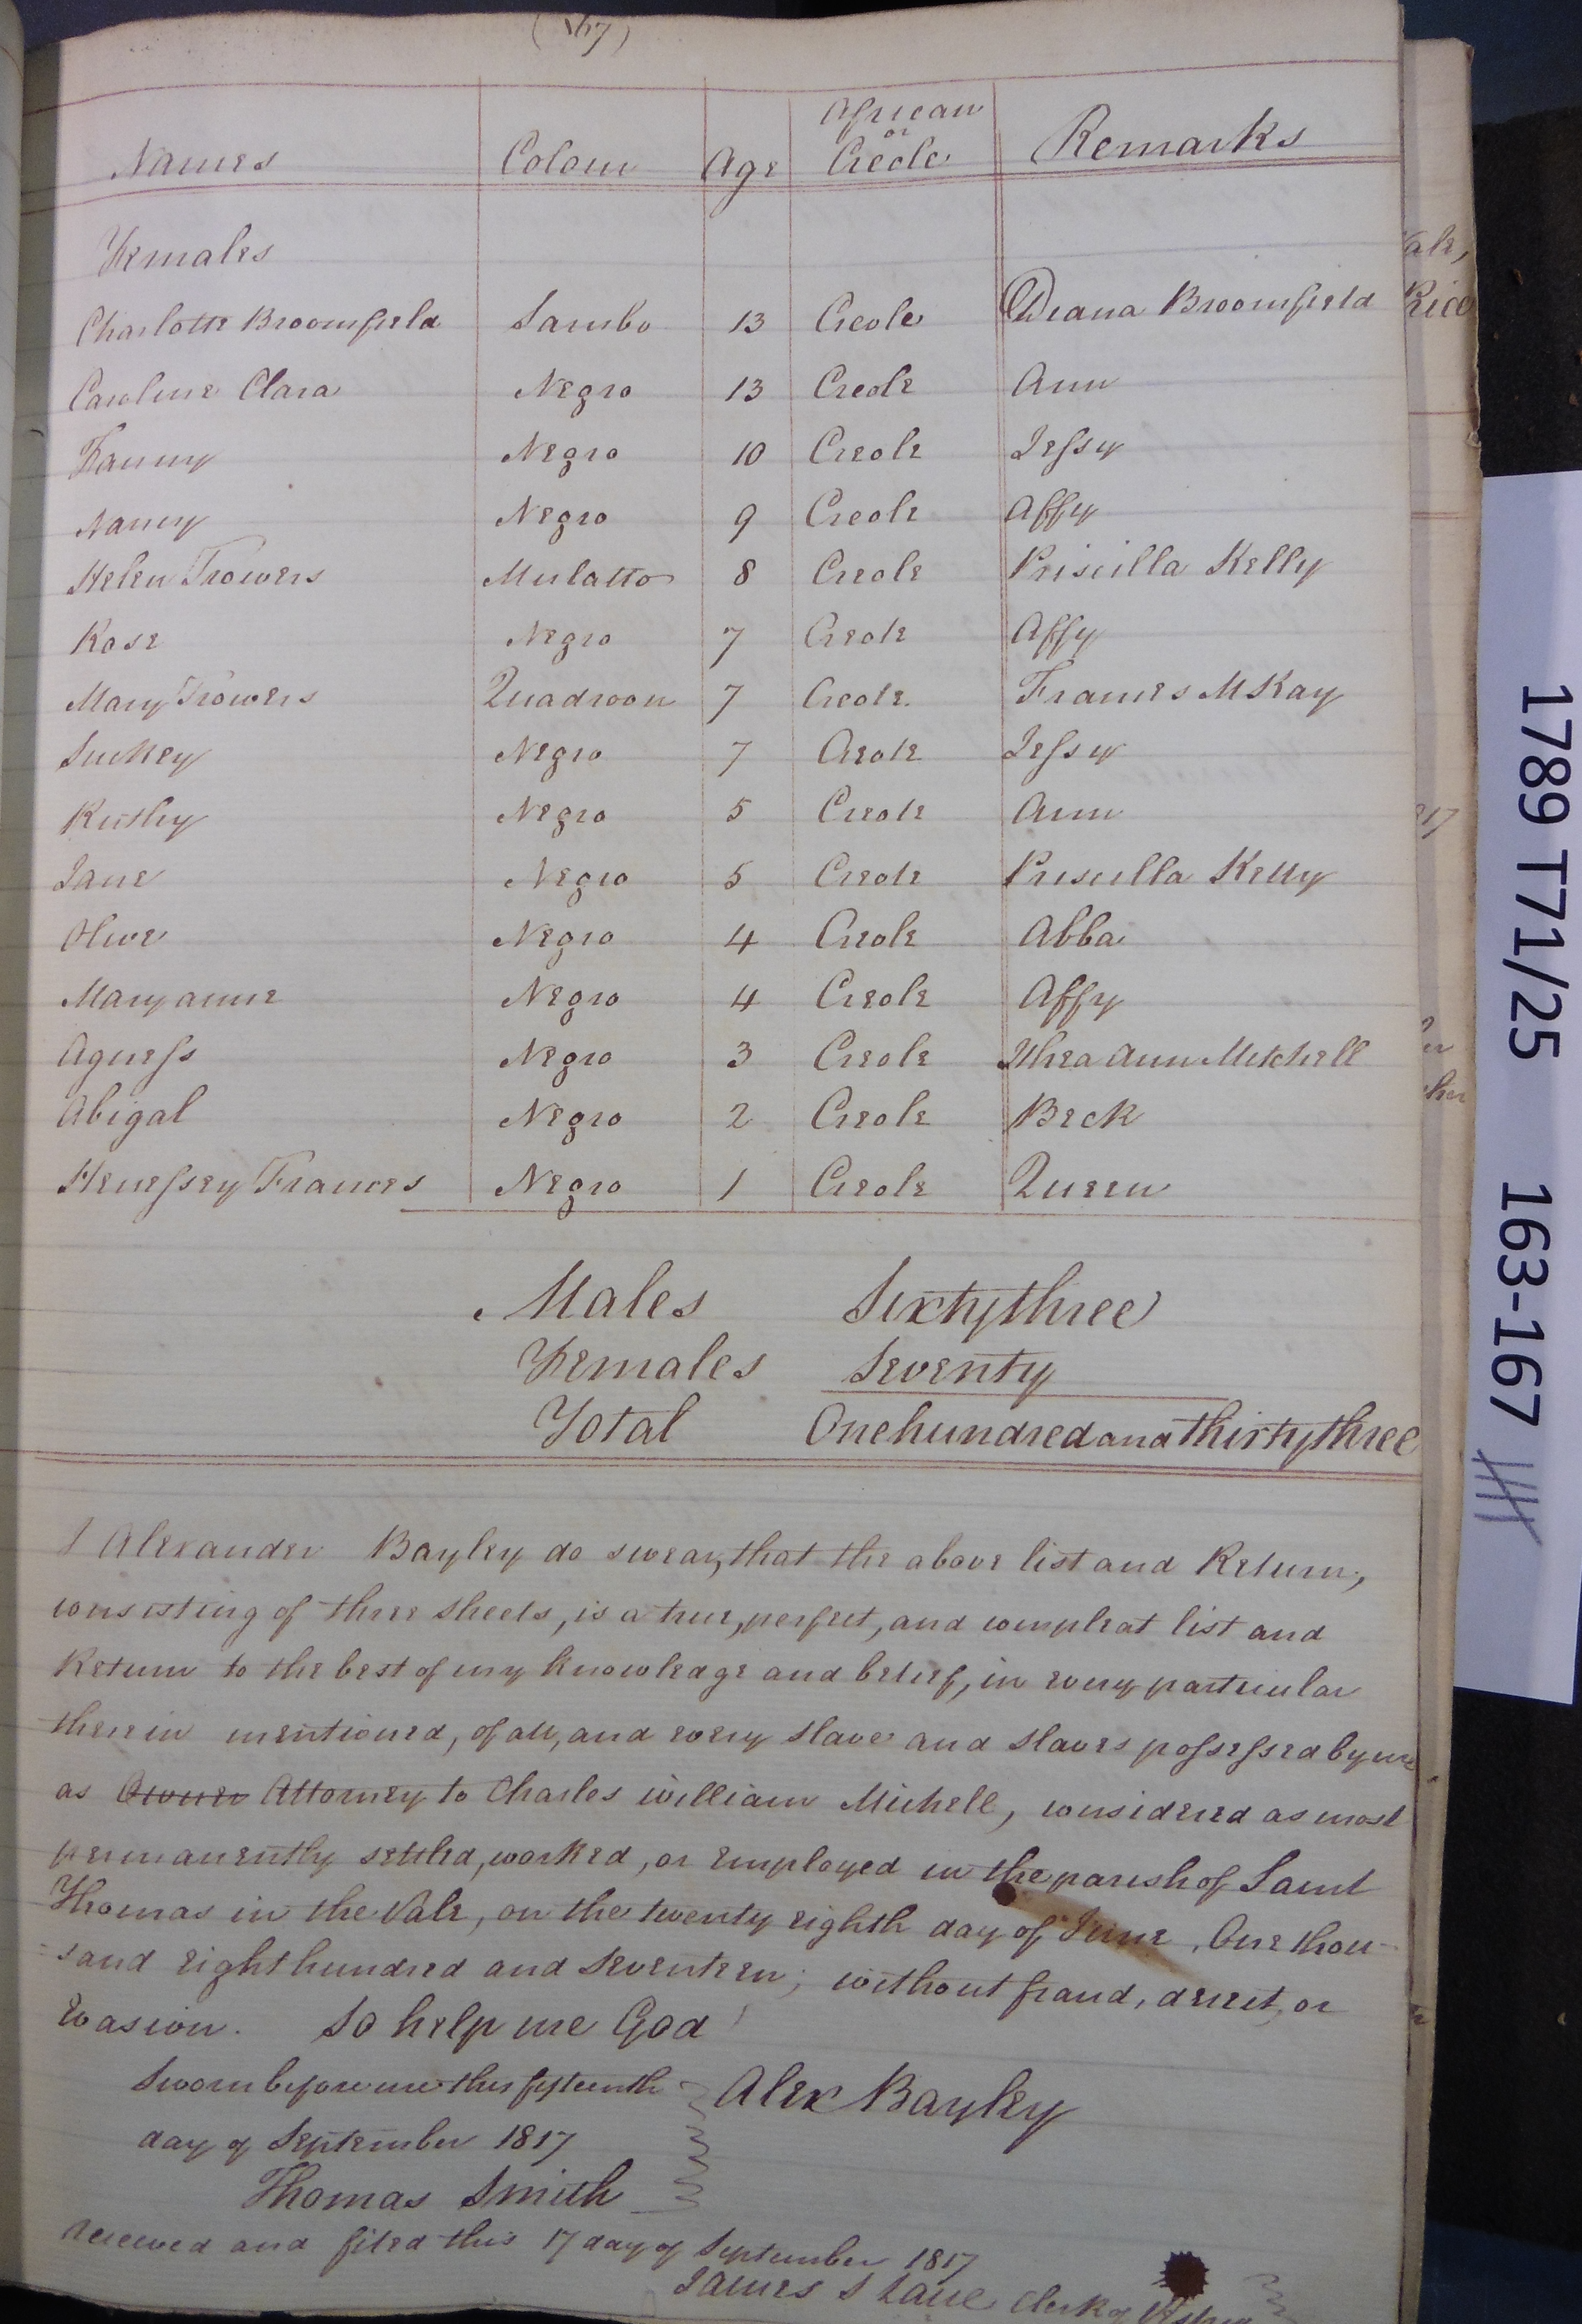 (167)
Names Colour Age African or Creole Remarks
Females
Charlotte Broomfield Sambo 13 Creole Diana Broomfield
Caroline Clara Negro 13 Creole Ann
Fanny Negro 10 Creole Jessy
Nancy Negro 9 Creole Affy
Helen Trowers Mulatto 8 Creole Priscilla Kelly
Rose Negro 7 Creole Affy
Mary Trowers Quadroon 7 Creole Frances McKay
Suckey Negro 7 Creole Jessy
Negro 5 Creole Ann
Jane Negro 5 Creole Priscilla Kelly
Olive Negro 4 Creole Abba
Maryanne Negro 4 Creole Affy
Agness Negro 3 Creole Ann Mitchell
Abigal Negro 2 Creole Beck
Henessey Frances Negro 1 Creole Queen
Males Sixty three
Females Seventy
Total One hundred and thirty three
I Alexander Bayley do swear, that the above list and Return,
consisting of three sheets, is a true, perfect, and compleat list and
Return to the best of my knowledge and belief, in every particular
therein mentioned, of all, and every slave and slaves possessed by me
as Owner Attorney to Charles William Michell, considered as most
permanently settled, worked, or employed in the parish of Saint
Thomas in the Vale, on the twenty eighth day of June, One thou-
sand eight hundred and seventeen; without fraud, deceit, or
Evasion. So help me God!
Sworn before me this fifteenth Alex Bayley
day of September 1817
Thomas Smith
received and filed this 17 day of September 1817
James S Lane Clerk of Vestry
1789 T71/25 163-167
ale,
Rice